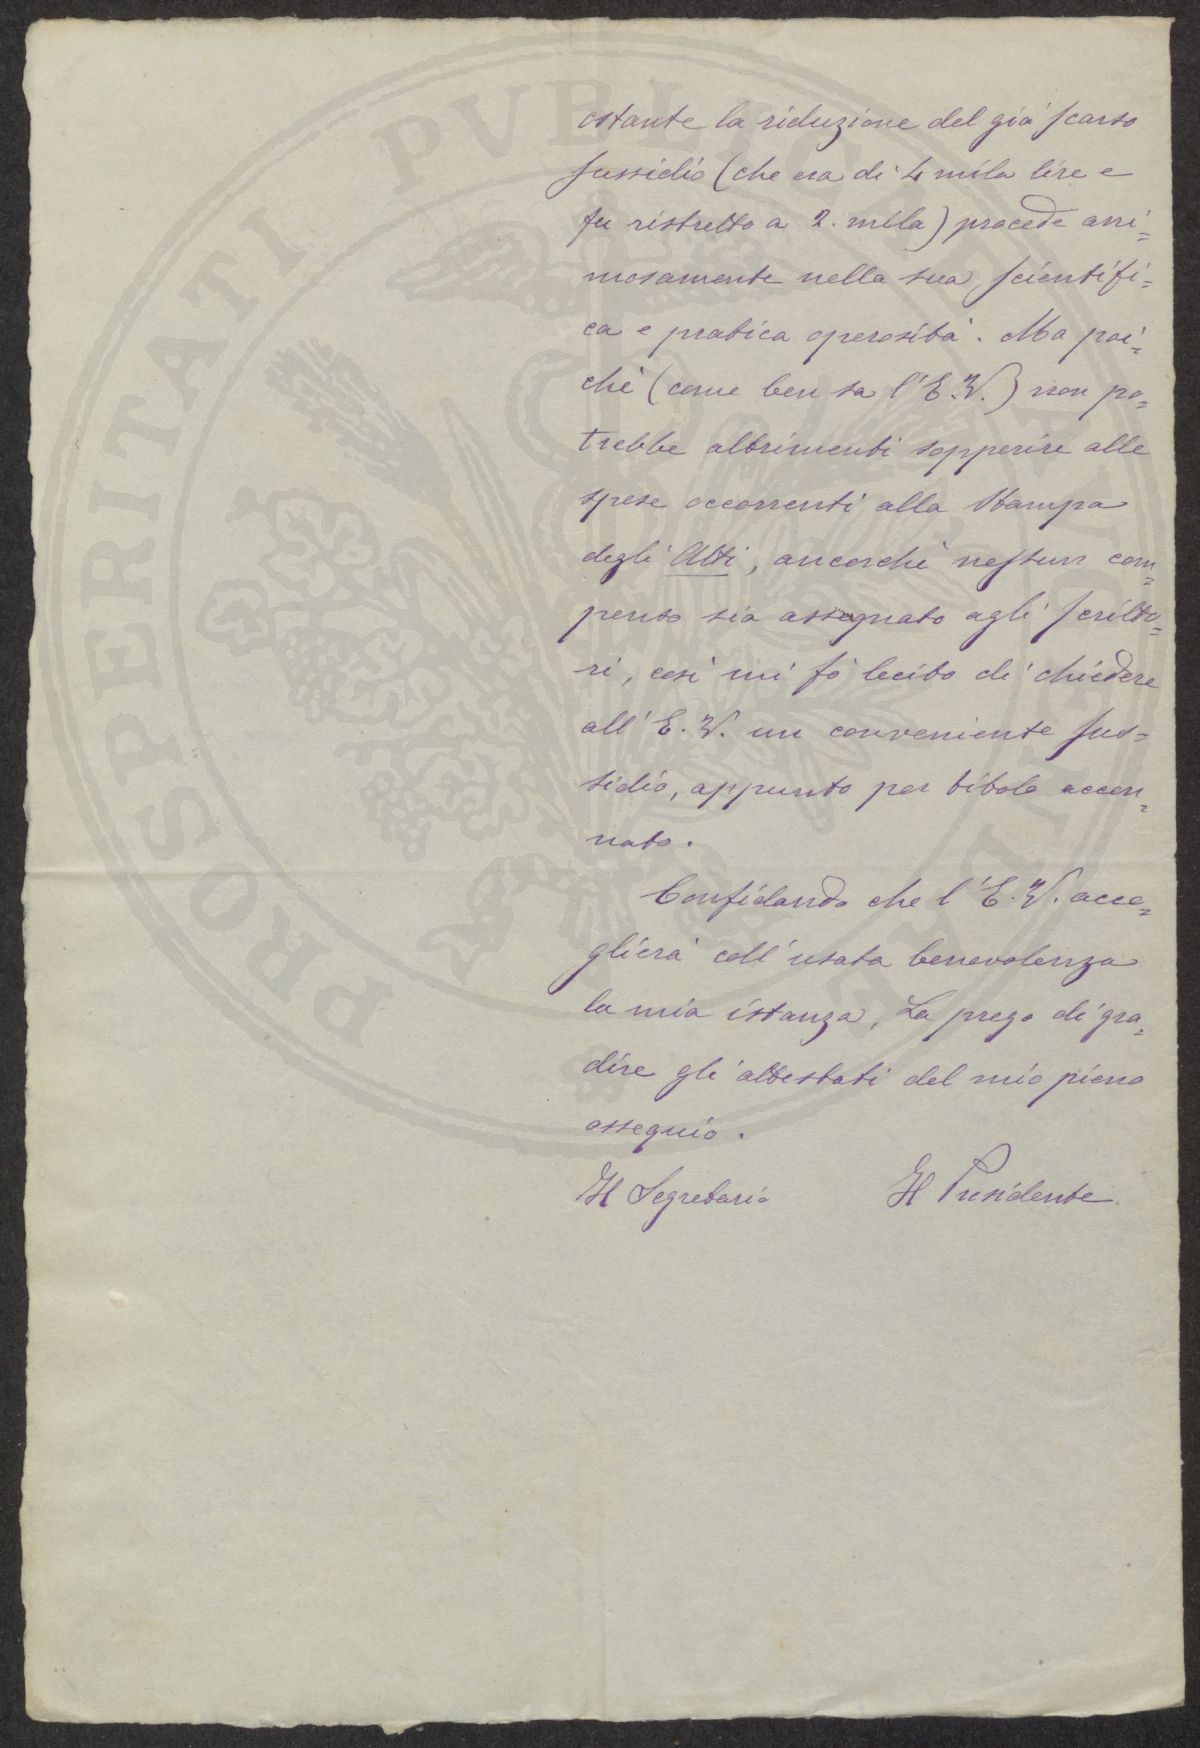 ostante la riduzione del già scarso
sussidio (che era di 4 mila lire e
fu ristretto a 2. mila) procede ani=
mosamente nella sua scientifi=
ca e pratica operosità. Ma poi=
chè (come ben sa l'E.V.) non po=
trebbe altrimenti sopperire alle
spese occorrenti alla stampa
degli Atti, ancorchè nessun com=
penso sia assegnato agli scritto=
ri, così mi fo lecito di chiedere
all'E.V. un conveniente sus=
sidio, appunto per titolo accen=
nato.
Confidando che l'E.V. acco=
glierà coll'usata benevolenza
la mia istanza, La prego di gra=
dire gli attestati del mio pieno
ossequio.
Il Segretario Il Presidente
PROSPERITATI PVBLICAE